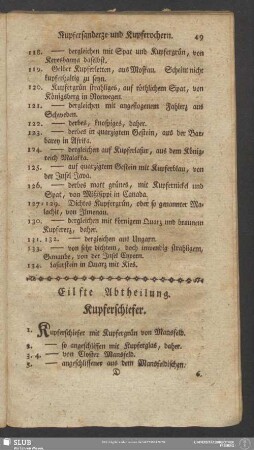 Kupfersanderze und Kupferochern. 49
118. — dergleichen mit Spat und Kupfergrün, von
Kereshanna daselbst.
119. Gelber Kupferletten, aus Moßkau. Scheint nicht
kupferhaltig zu seyn.
120. Kupfergrün strahliges, auf röthlichem Spat, von
Königsberg in Norwegen.
121. — dergleichen mit angeflogenem Fahlerz aus
Schweden.
122. — derbes, knospiges, daher.
123. — derbes in quarzigtem Gestein, aus der Bar-
barey in Afrika.
124. — dergleichen auf Kupferlasur, aus dem König-
reich Malakka.
125. — auf quarzigtem Gestein mit Kupferblau, von
der Insel Java.
126. — derbes matt grünes, mit Kupfernickel und
Spat, von Mißisippi in Canada.
127-129. Dichtes Kupfergrün, oder so genannter Ma-
lachit, von Ilmenau.
130. — dergleichen mit körnigem Quarz und braunem
Kupfererz, daher.
131. 132. — dergleichen aus Ungarn.
133. — von sehr dichtem, doch inwendig strahligem,
Gewande, von der Insel Cypern.
134. Lasurstein in Quarz mit Kies.
Eilfte Abtheilung.
Kupferschiefer.
1. Kupferschiefer mit Kupfergrün von Mansfeld.
2. — so angeschliffen mit Kupferglas, daher.
3. 4. — von Closter Mansfeld.
5. — angeschliffener aus dem Mansfeldischen.
D 6.